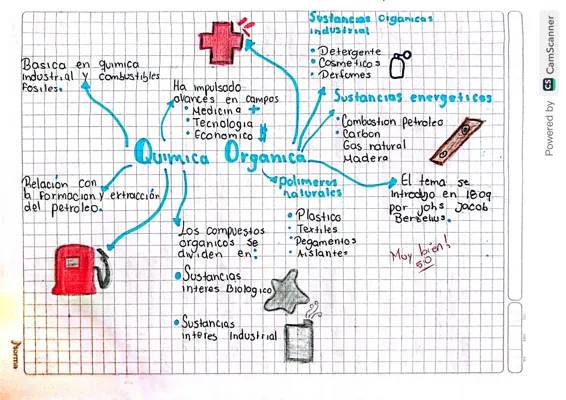 Sustancias Organicas
industrial
• Detergente
• Cosmeticos
• Perfomes
Basica en quimica
industrial y combustibles
fosiles.
Ha impulsado
avances en campos
• Medicina +
• Tecnologia
• Economico $
Sustancias energeticos
• Combastion petroleo
• Carbon
Gas natural
Madera
Quimica Organica
Relación con
la formacion y extracción
del petroleo.
polimeros
naturales
• Plastico
• Textiles
• Pegamentos
• Aislantes
El tema se
introdujo en 1809
por johs Jacob
Berselius.
Muy bien!
5.0
Los compuestos
organicos se
dividen en:
• Sustancias
interes Biologico
• Sustancias
interes Industrial
norma
Powered by CS CamScanner